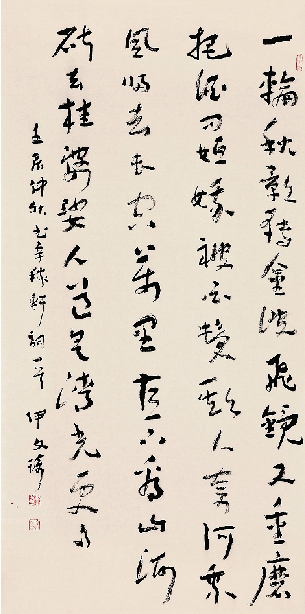 一輪秋影轉金波飛鏡又重磨
把酒問姮娥被白髮欺人奈何乘
風好去長空萬里直下看山河
斫去桂婆娑人道是清光更多
壬辰仲秋書辛稼軒詞一首 伊文